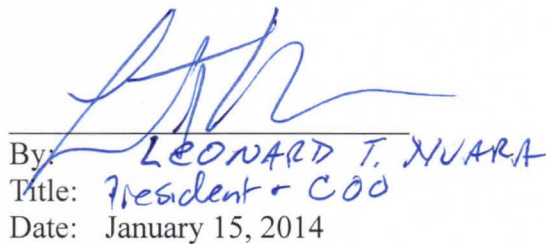 By: LEONARD T. NVARA
Title: President + COO
Date: January 15, 2014